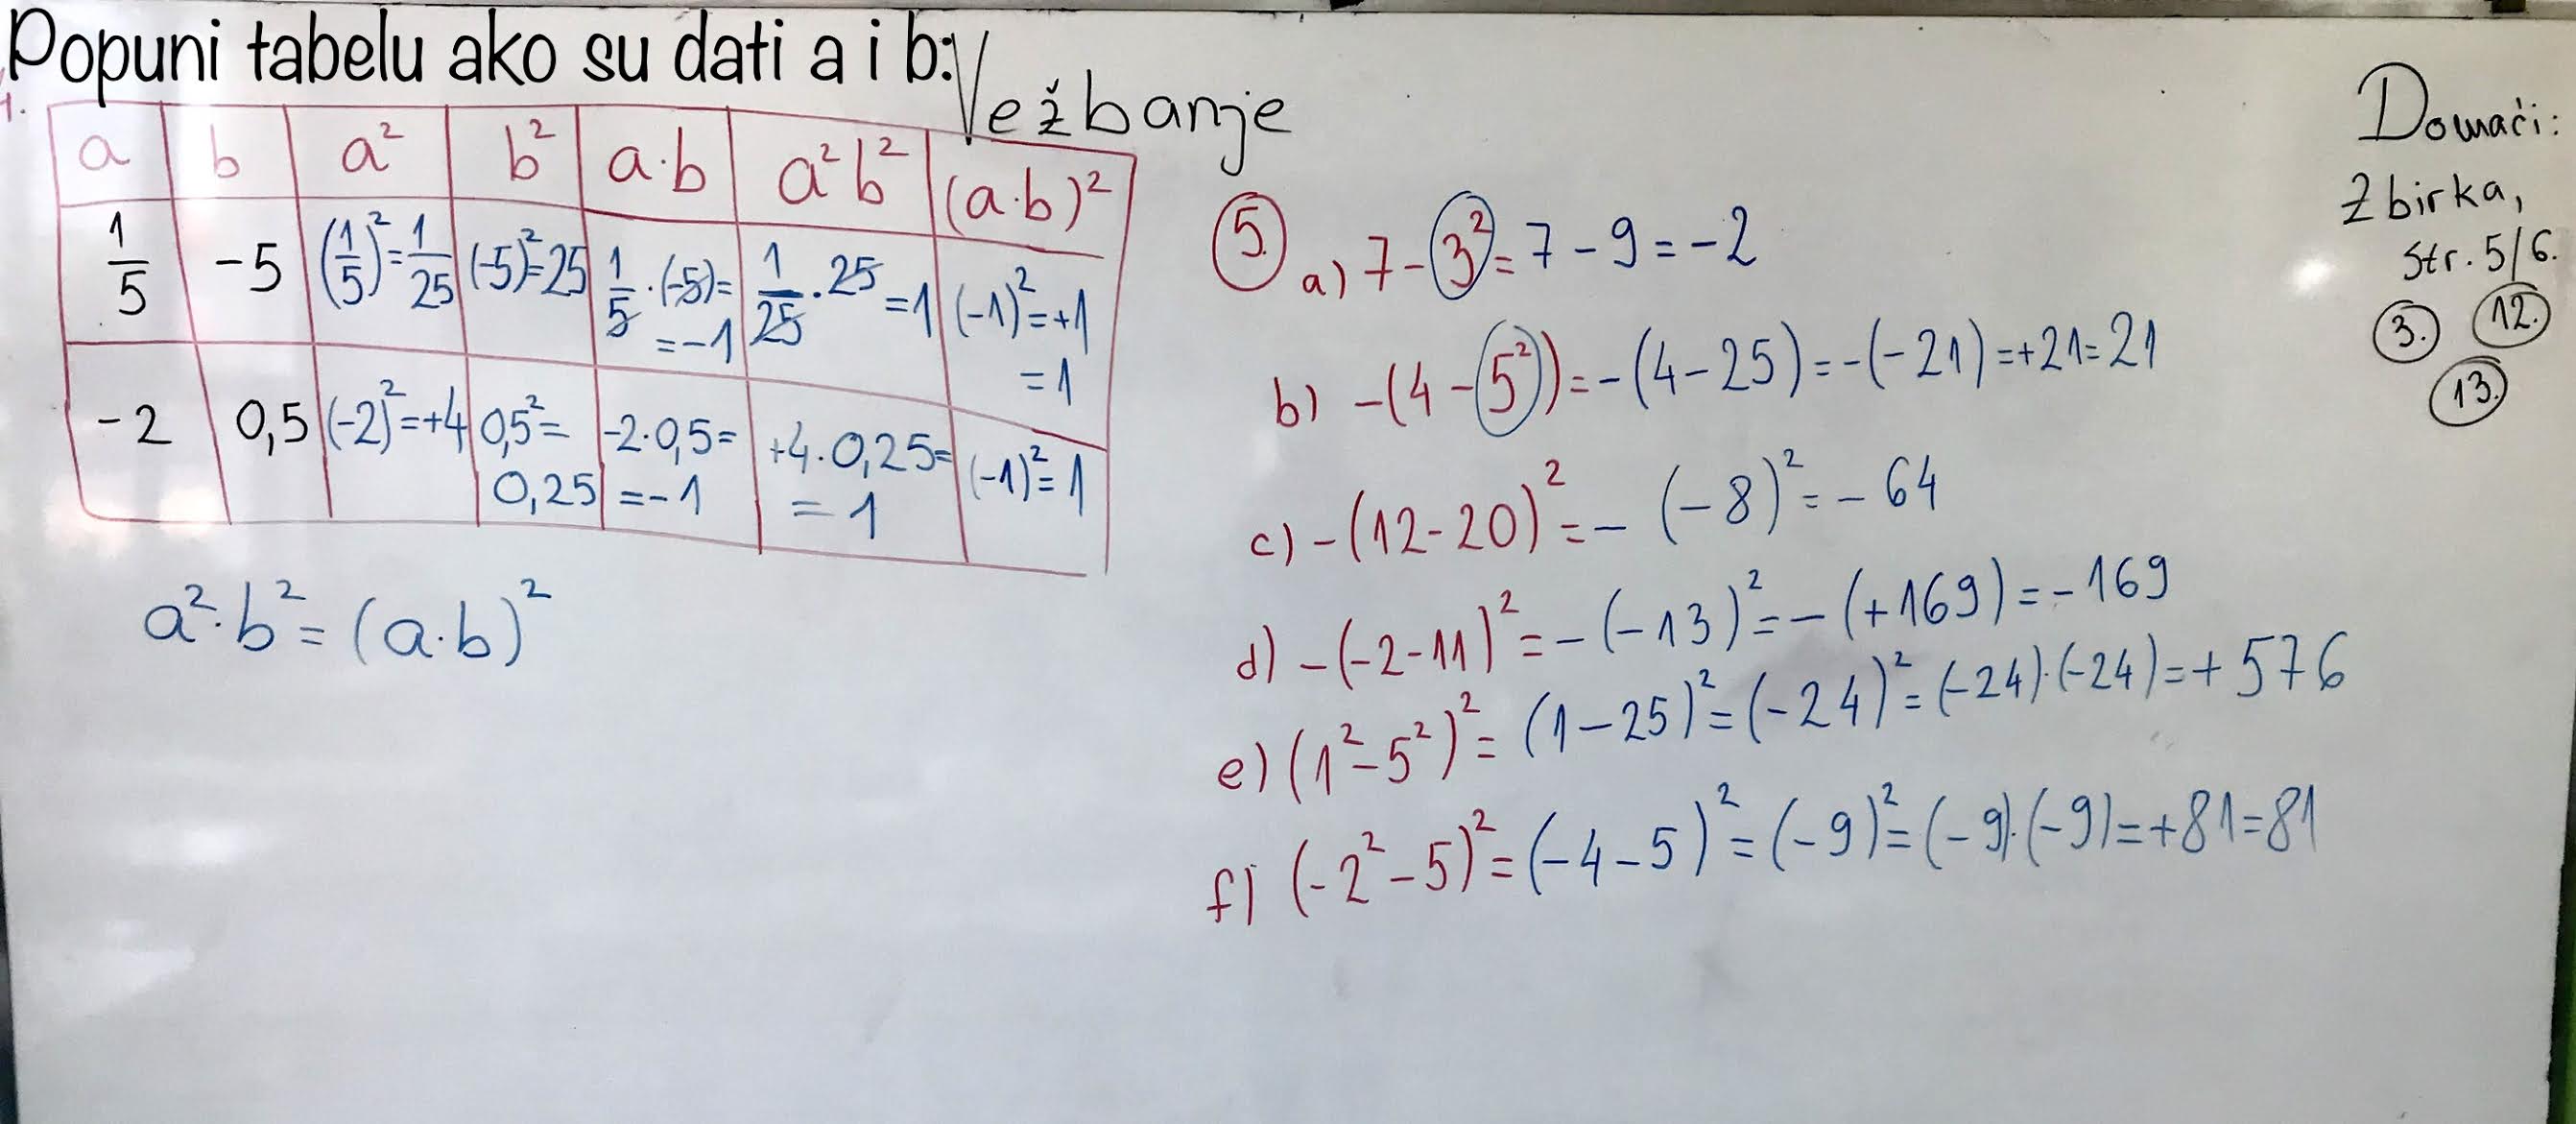 Popuni tabelu ako su dati a i b:
Vežbanje
1.
a b a² b² a·b a²b² (a·b)²
1/5 -5 (1/5)²=1/25 (-5)²=25 1/5·(-5)= =-1 1/25·25=1 (-1)²=+1 =1
-2 0,5 (-2)²=+4 0,5²= 0,25 -2·0,5= =-1 +4·0,25= =1 (-1)²=1
a²·b²=(a·b)²
5. a) 7-3²=7-9=-2
b) -(4-5²)=-(4-25)=-(-21)=+21=21
c) -(12-20)²=-(-8)²=-64
d) -(-2-11)²=-(-13)²=-(+169)=-169
e) (1²-5²)²=(1-25)²=(-24)²=(-24)·(-24)=+576
f) (-2²-5)²=(-4-5)²=(-9)²=(-9)·(-9)=+81=81
Domaći:
Zbirka,
Str. 5/6.
3. 12.
13.